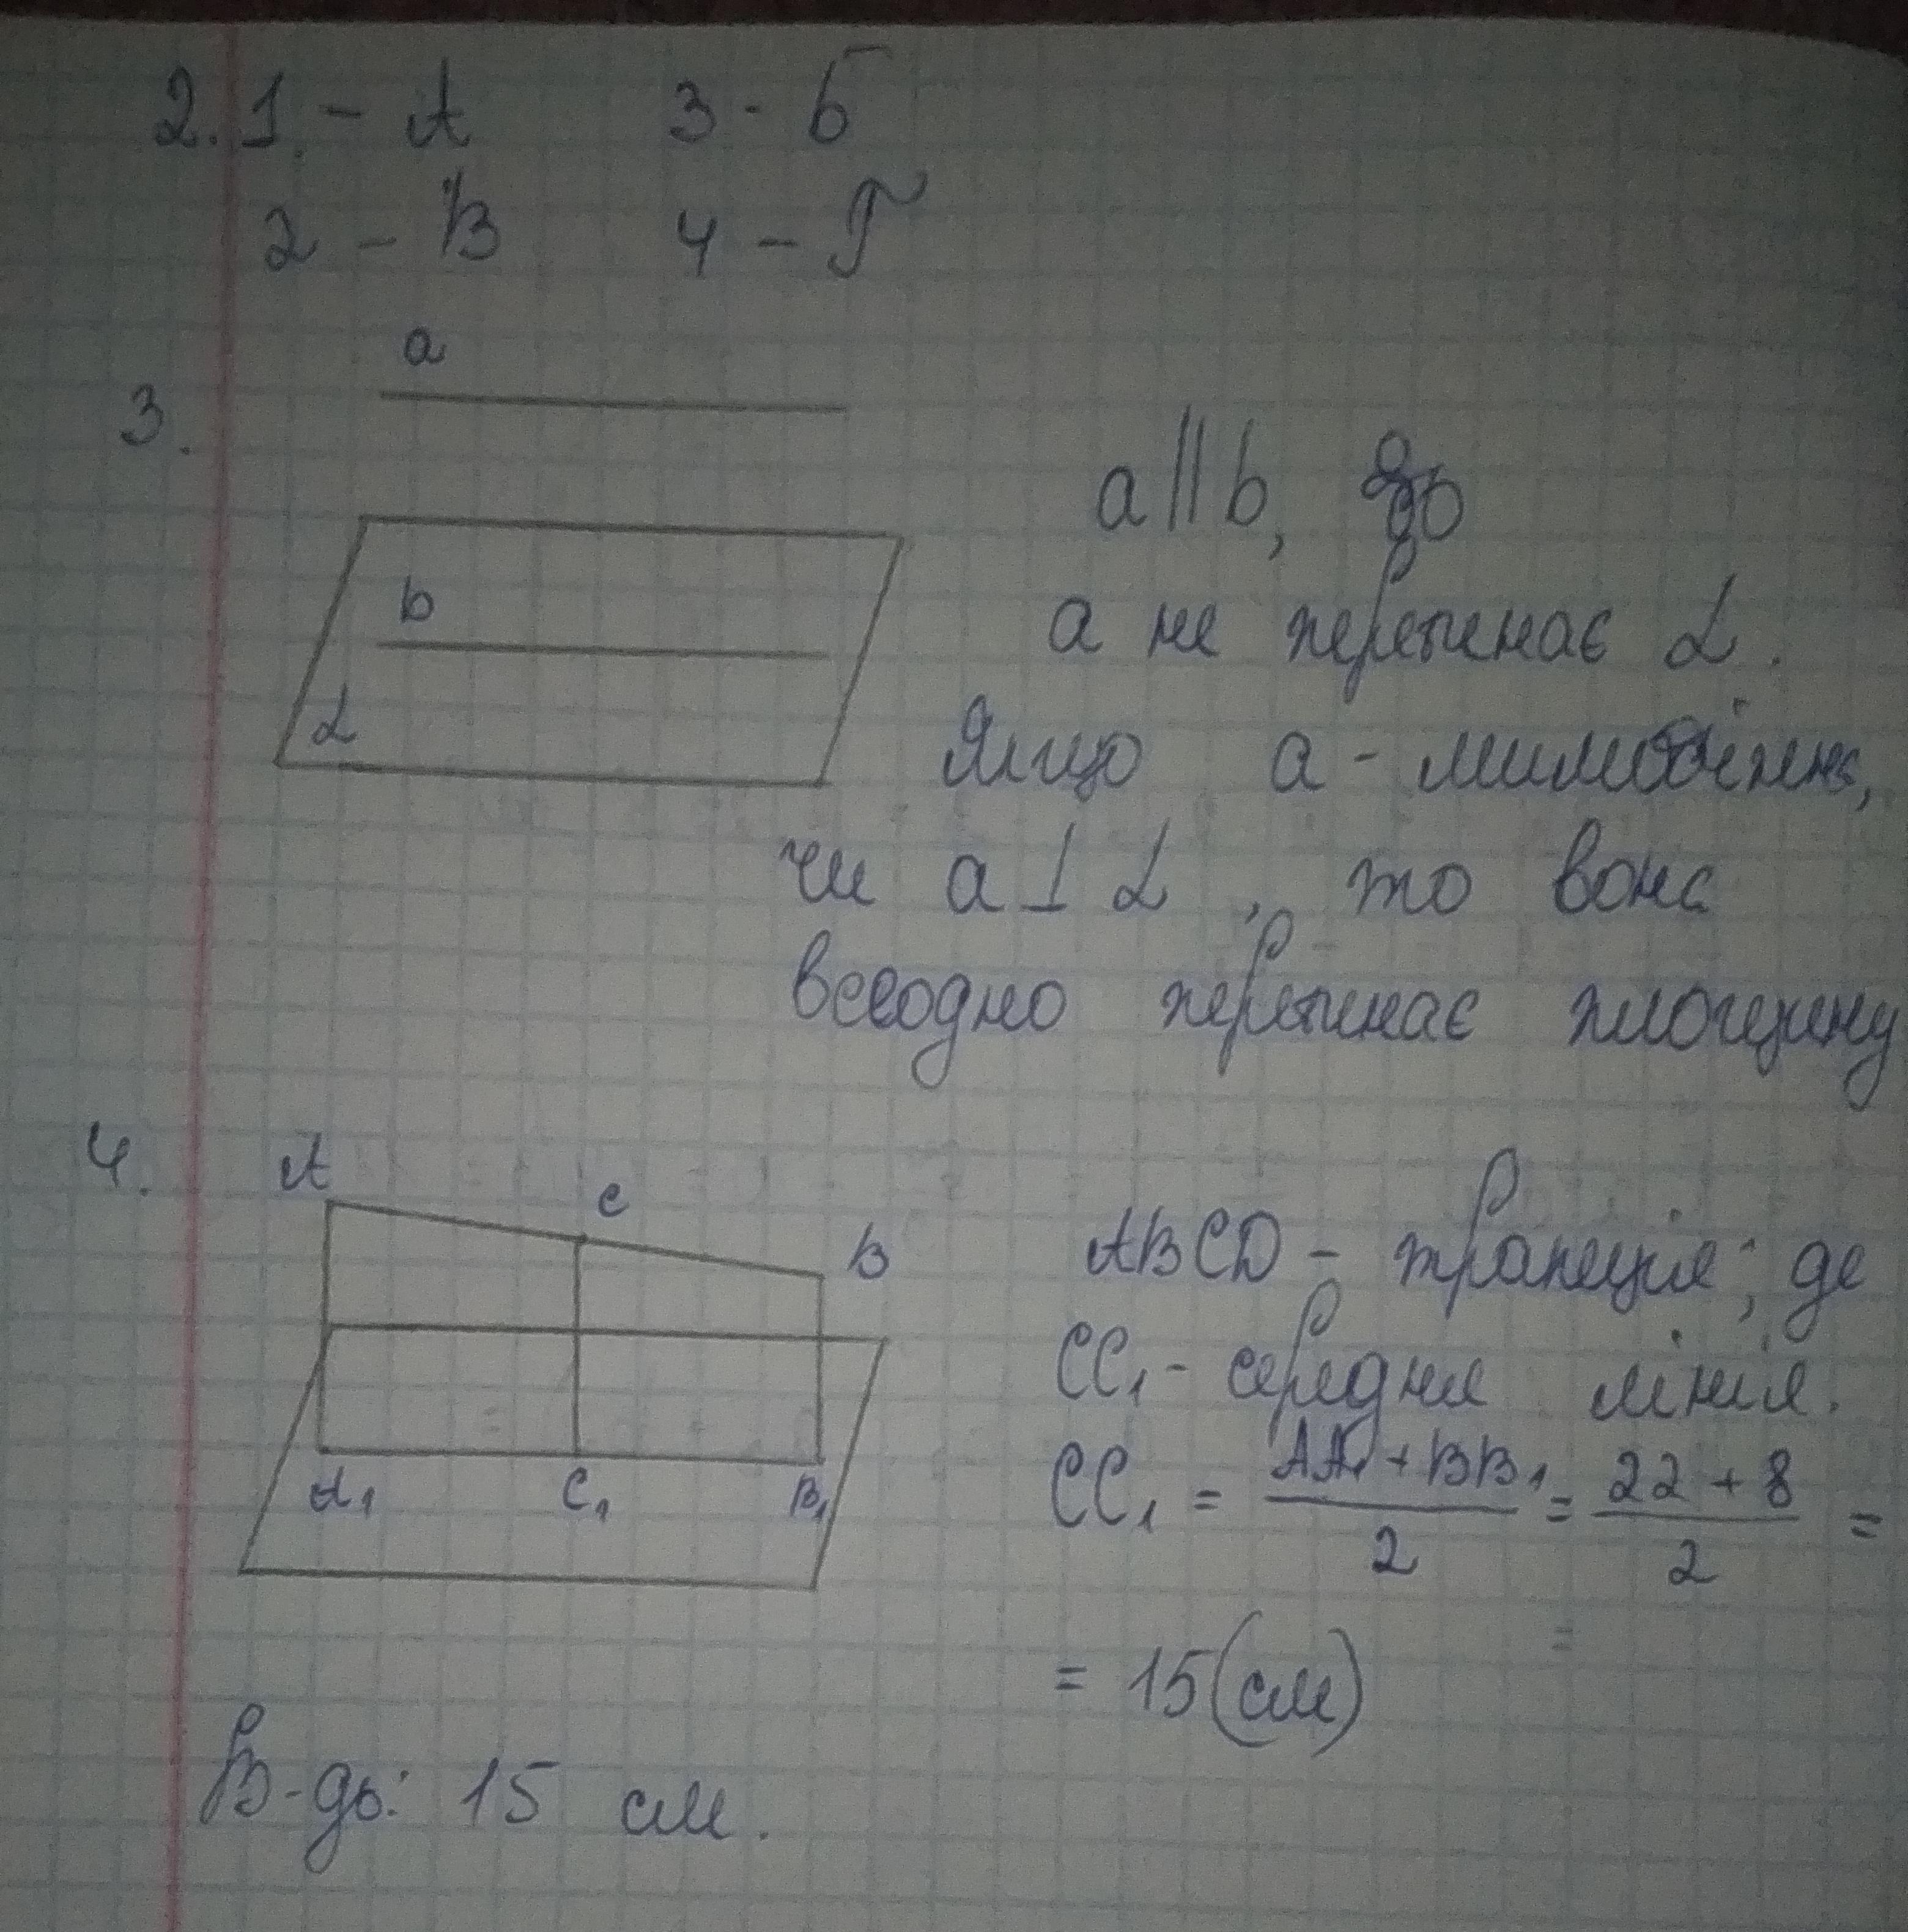 2. 1 - А 3 - Б
2 - В 4 - Г
3.
a
b
α
a || b, бо
a не перетинає α.
Якщо a - мимобіжна,
чи a ⊥ α, то вона
всеодно перетинає площину
4.
A
C
B
A₁ C₁ B₁
ABCD - трапеція, де
CC₁ - середня лінія.
CC₁ = (AA₁ + BB₁)/2 = (22 + 8)/2 =
= 15 (см)
В-дь: 15 см.